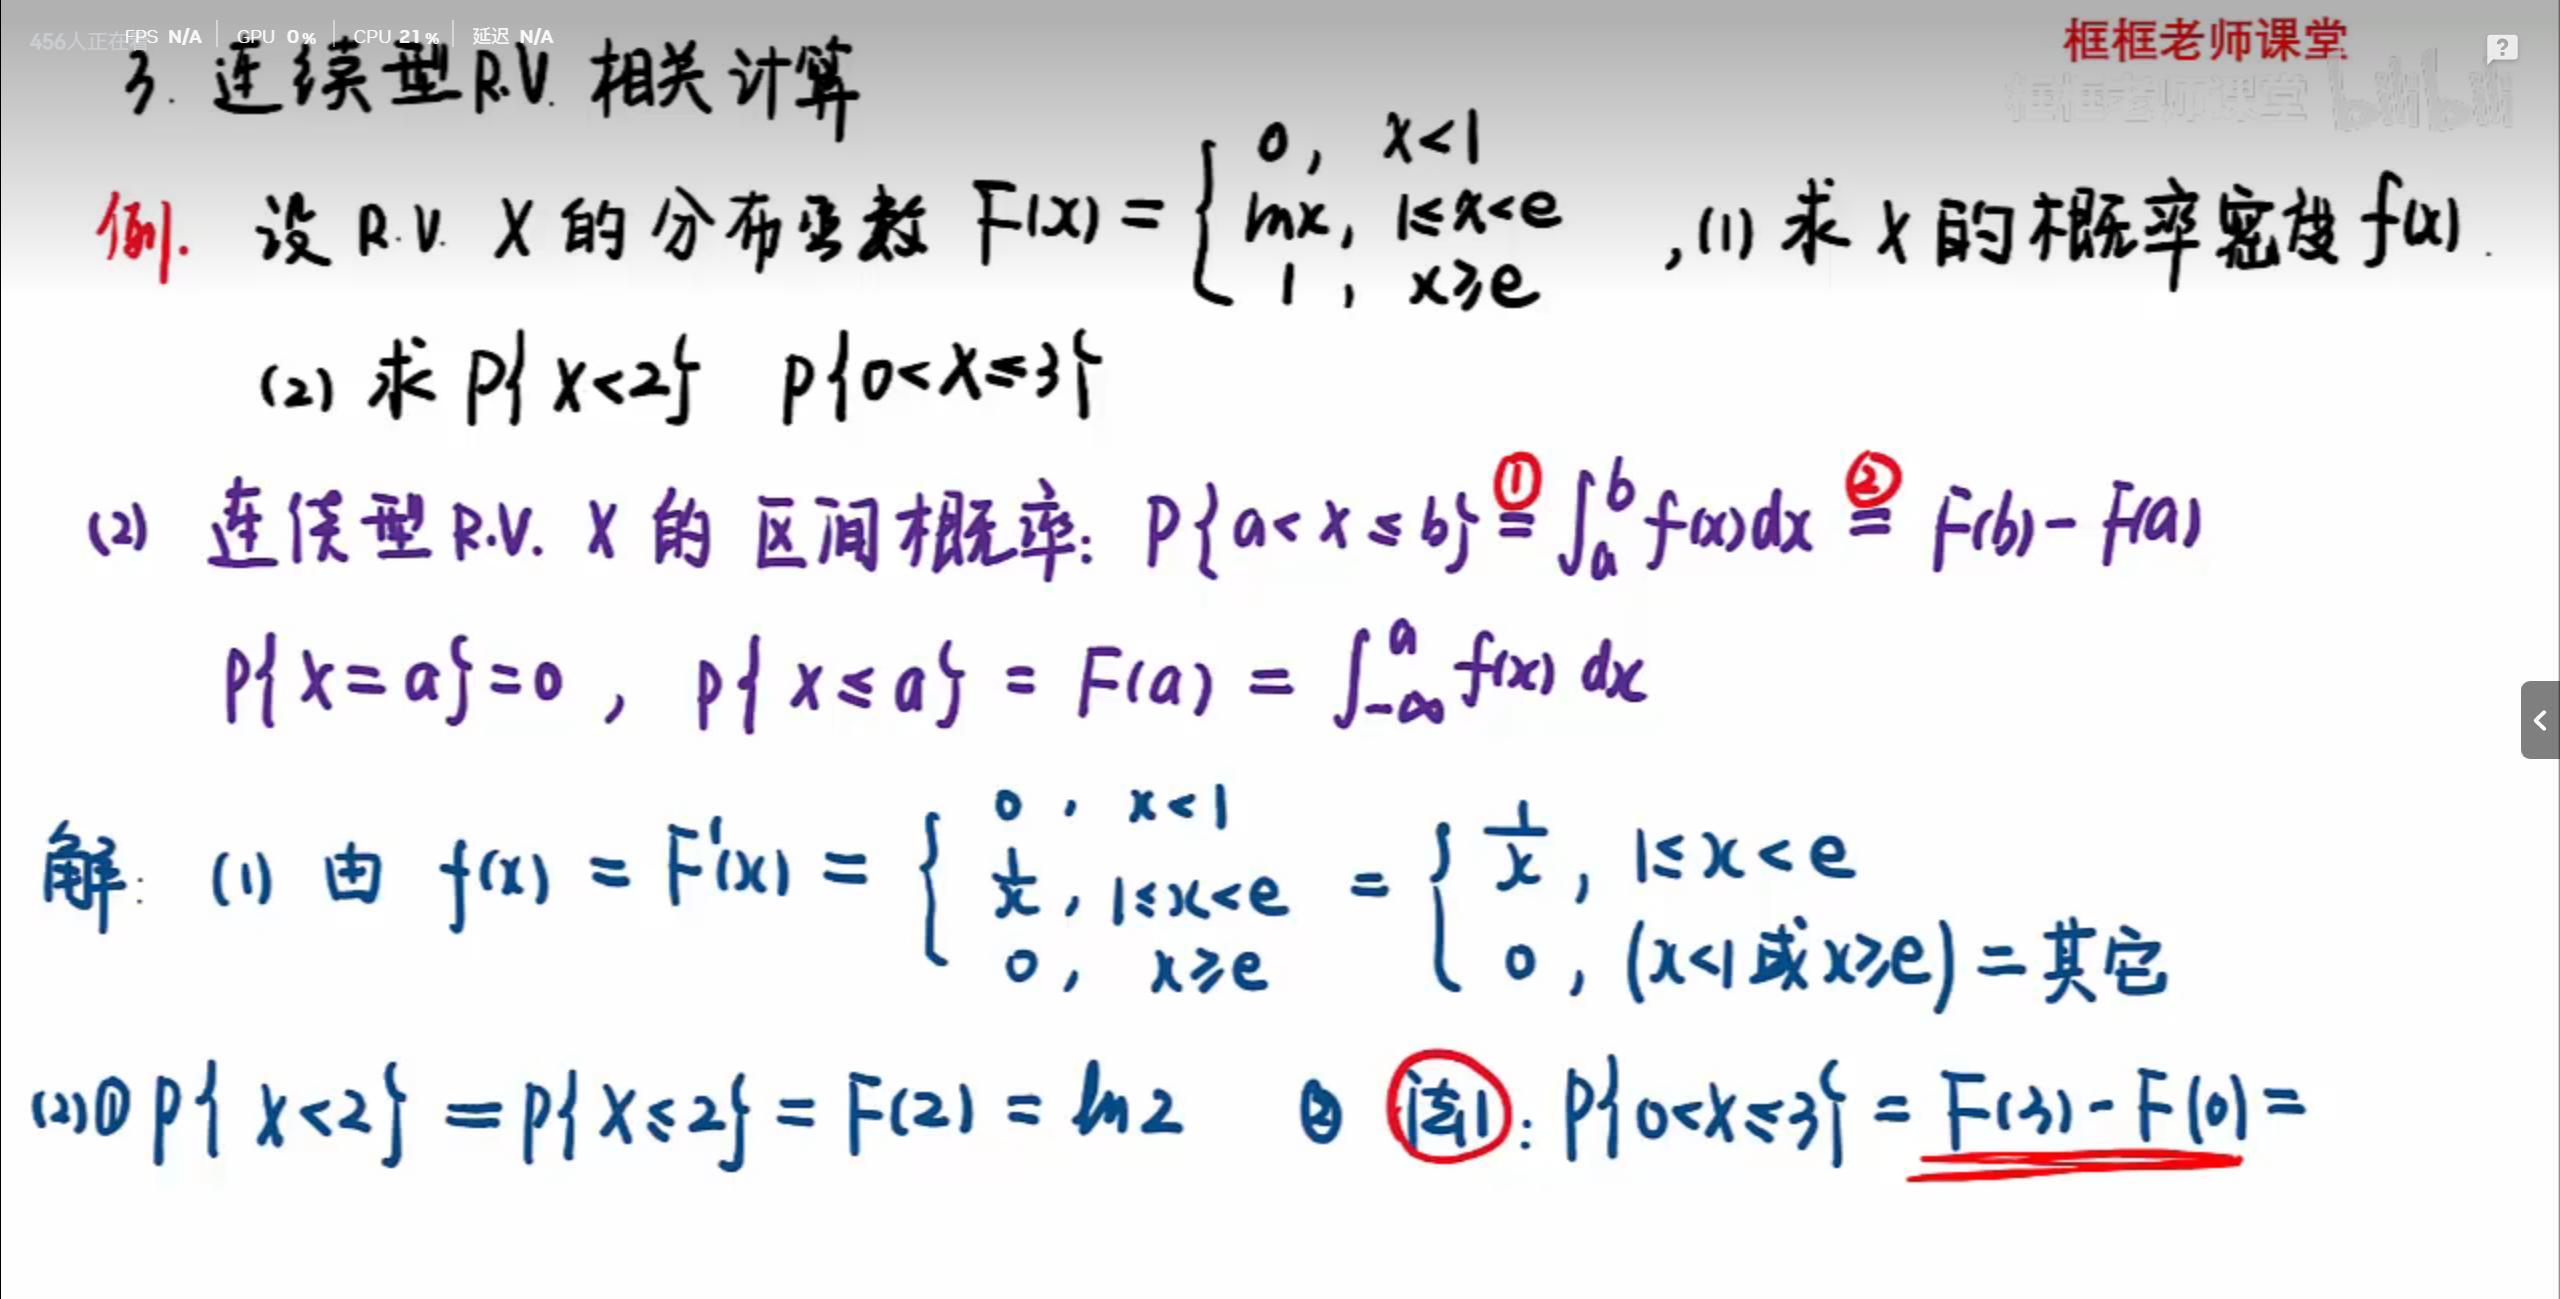 456人正在 FPS N/A GPU 0% CPU 21% 延迟 N/A
框框老师课堂
框框老师课堂 bilibili
3. 连续型R.V. 相关计算
例. 设 R.V. X 的分布函数 F(x) = { 0, x<1 ; lnx, 1≤x<e ; 1, x≥e , (1) 求 X 的概率密度 f(x).
(2) 求 P{X<2} P{0<X≤3}
(2) 连续型R.V. X 的区间概率: P{a<X≤b} ①= ∫_a^b f(x)dx ②= F(b)-F(a)
P{X=a}=0, P{X≤a} = F(a) = ∫_{-∞}^a f(x) dx
解: (1) 由 f(x) = F'(x) = { 0, x<1 ; 1/x, 1≤x<e ; 0, x≥e = { 1/x, 1≤x<e ; 0, (x<1或x≥e) = 其它
(2)① P{X<2} = P{X≤2} = F(2) = ln2 ② 法1: P{0<X≤3} = F(3)-F(0) =